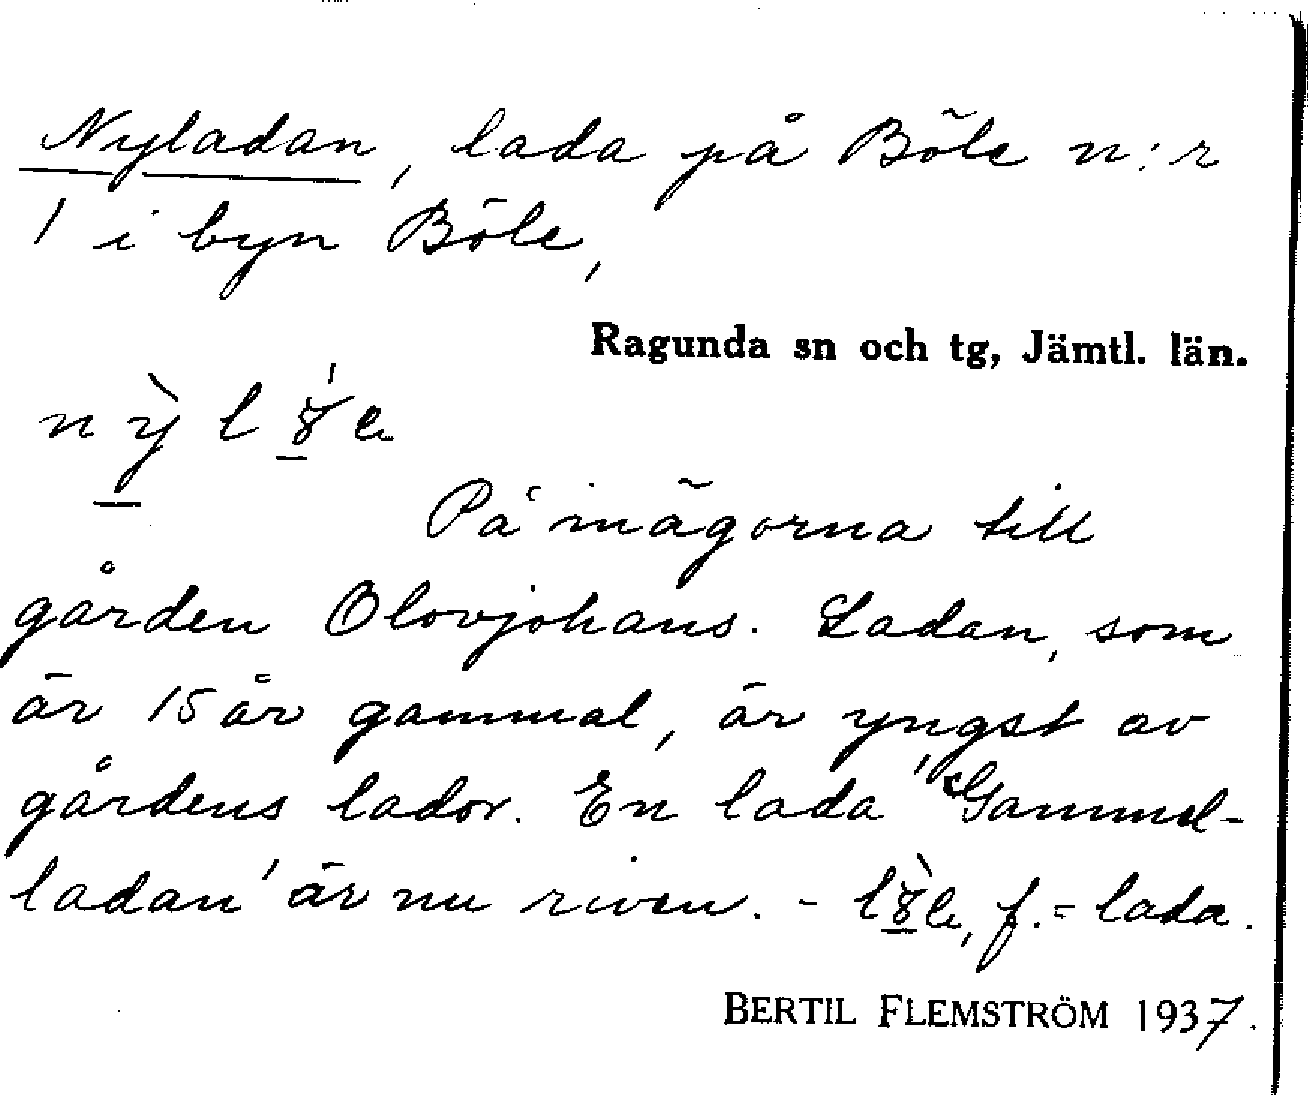 Nyladan, lada på Böle n:r
1 i byn Böle,
Ragunda sn och tg, Jämtl. län.
På inägorna till
gården Olovjohans. Ladan, som
är 15 år gammal, är yngst av
gårdens lador. En lada 'Gammel-
ladan' är nu riven. - f. = lada.
BERTIL FLEMSTRÖM 1937.